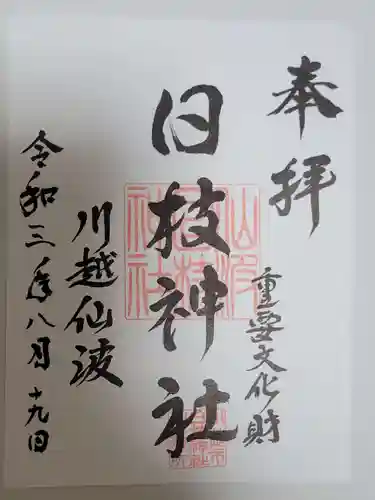 奉拝
重要文化財
日枝神社
川越仙波
令和三年八月十九日